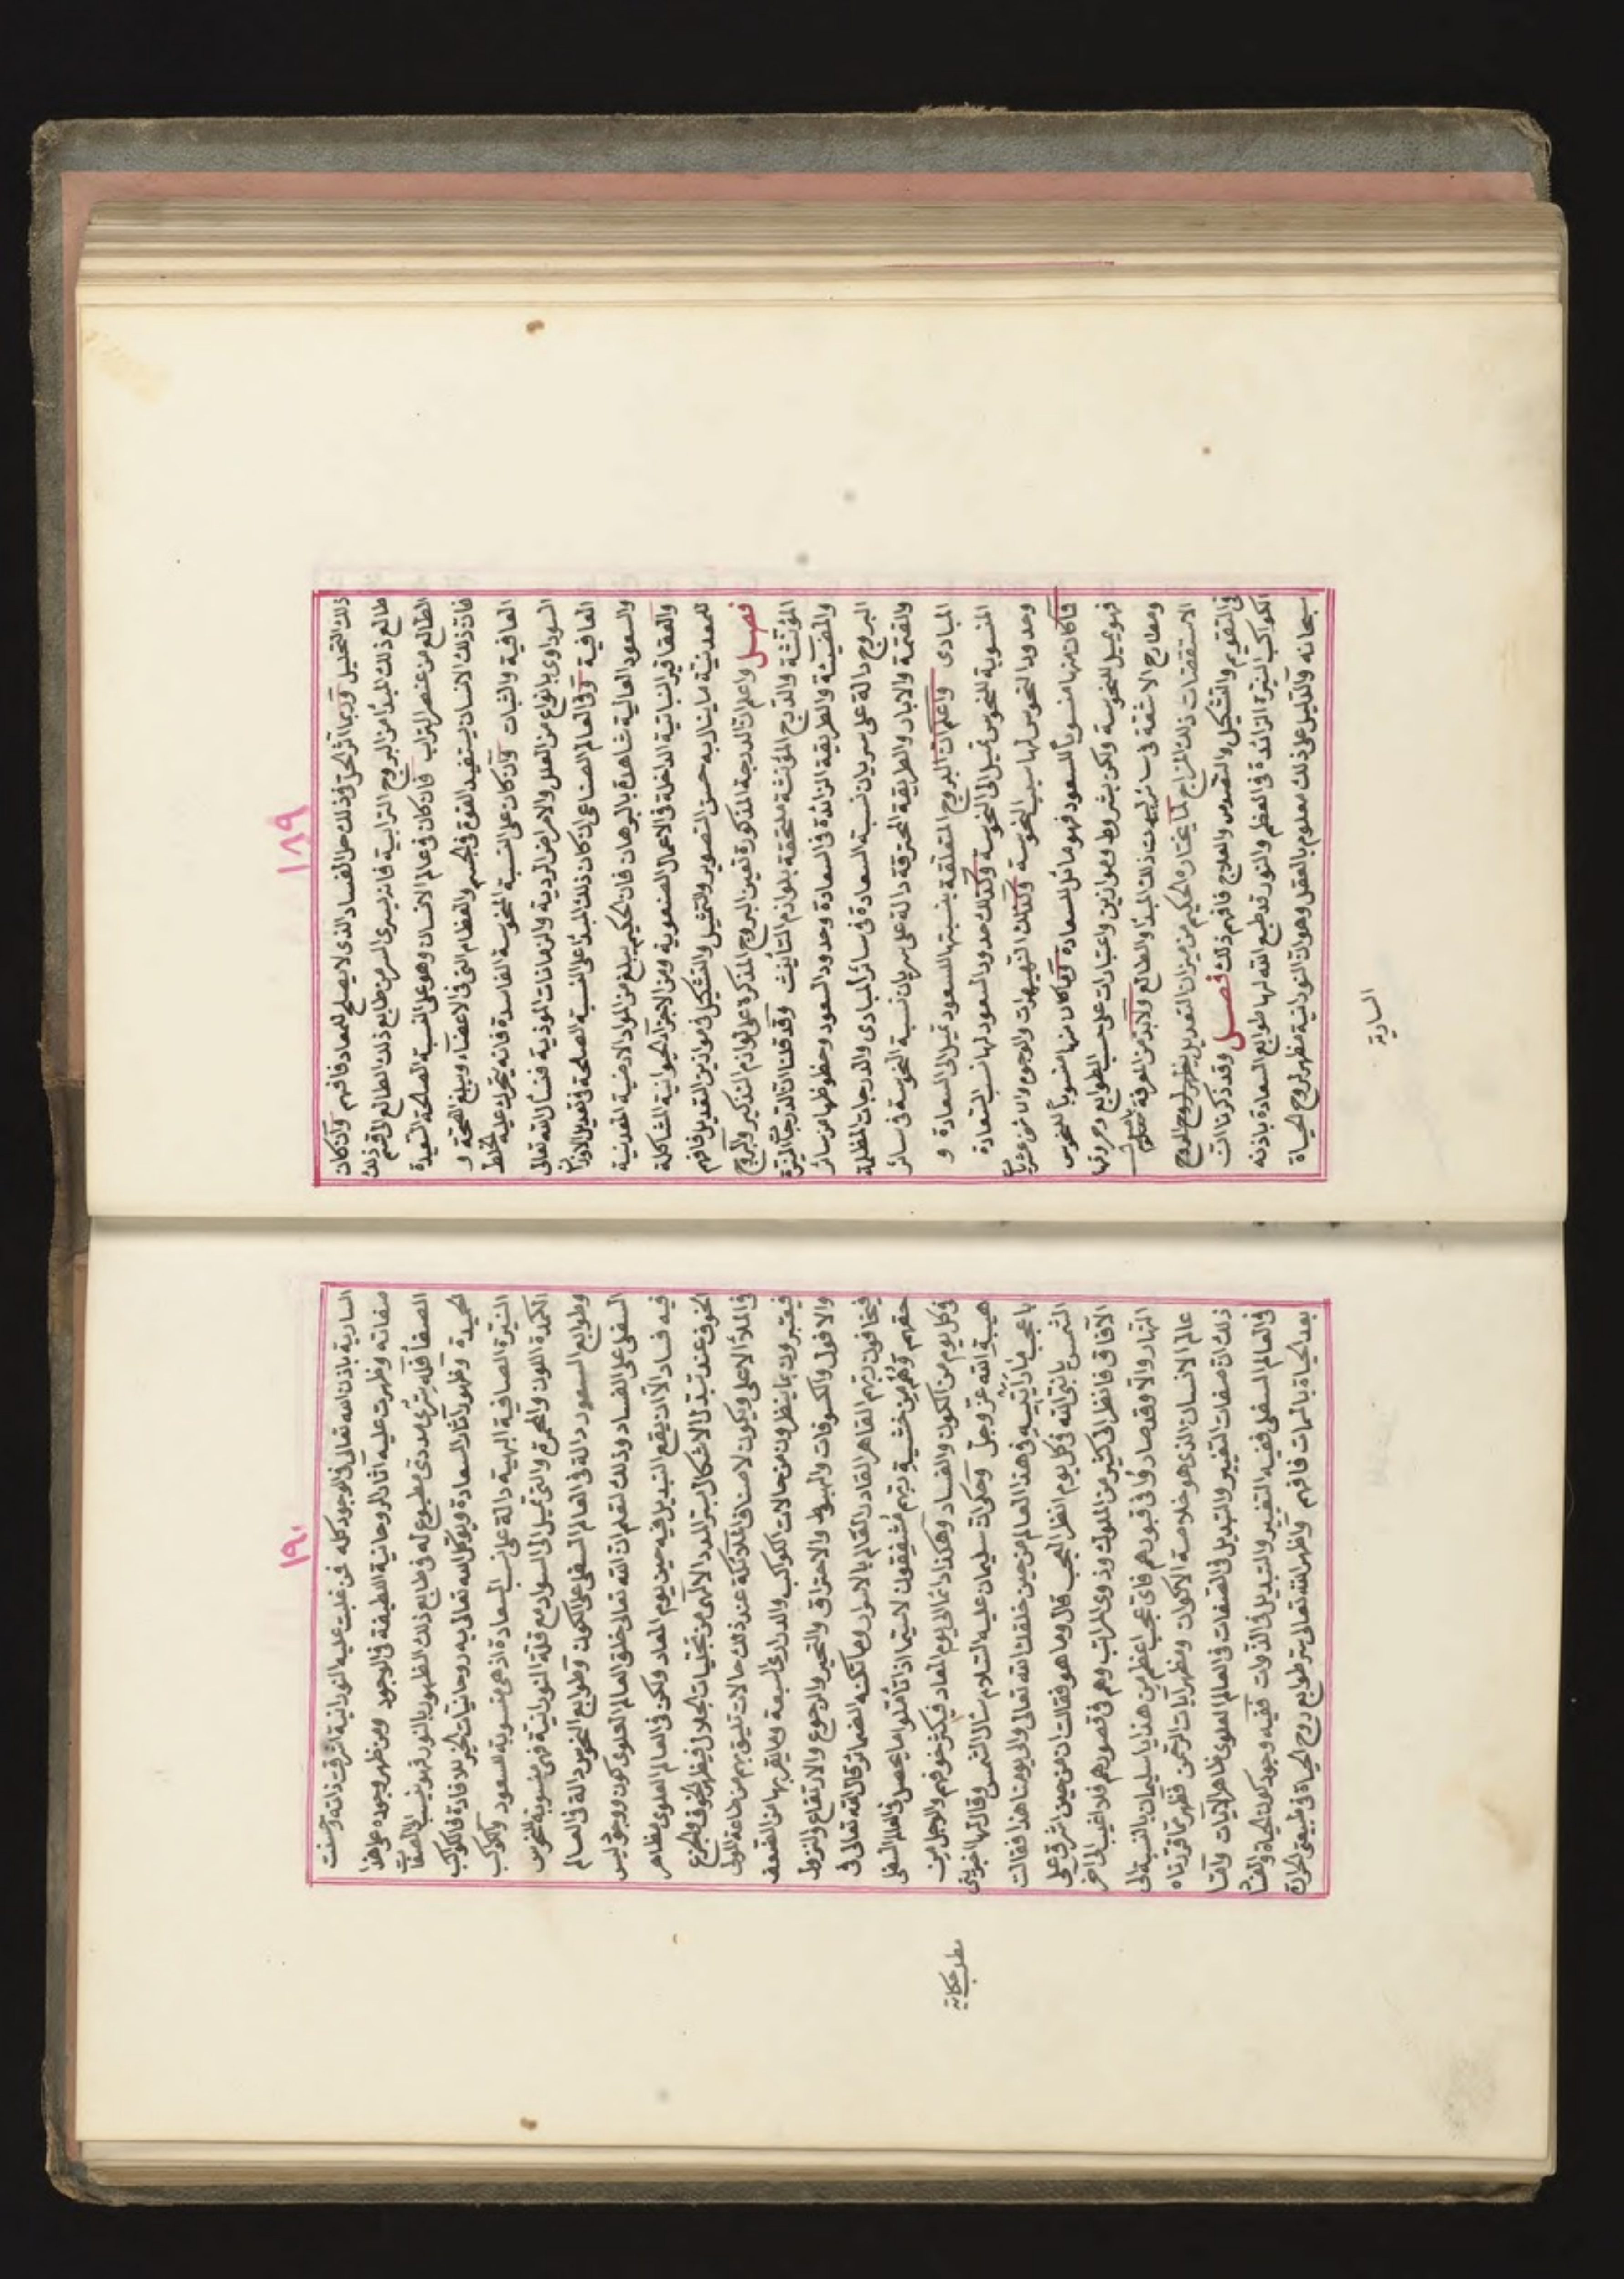 ١٨٩
ذلك التحليل وربما اثر الحق وذلك حل الفساد الذى لا يصلح للمعاد فافهم وان كان
طالع ذلك المبدأ من البروج الترابية فانه يسرى السر من طابع ذلك الطالع الى قسم ذلك
الطالع من عنصر التراب فان كان فى عالم الانسان وهو على النسبة الصالحة السعيدة
فان ذلك الانسان يستفيد القوة فى الجسم والعظام التى فى الاعضاء ويبلغ الصحة و
العافية والثبات وان كان على النسبة المنحوسة الفاسدة فانه يتحرك عليه الخلط
السوداوى بانواع من العلل والامراض الردية والزمانات الموذية فنسأل الله تعالى
العافية وفى العالم الصناعى ان كان ذلك المبدأ على النسبة الصالحة فى تعديل الاوزان
والسعود العالية شاهدة بالبرهان فان الحكيم يبلغ من المواد الارضية المعدنية
والعقاقير النباتية الداخلة فى الاعمال الصنعوية ومن الاجزاء الحيوانية المشاكلة
للمعدنية ما ينال به حسن التصوير والتمثيل والتشكيل فى موازين التعديل فافهم
فصل واعلم ان الدرجة المذكورة تعين البروج المذكرة على لوازم التذكير والبروج
المؤنثة والدرج المؤنثة ملحقة بلوازم التأنيث وقد قلنا ان الدرجات النيرة
والمضيئة والطريقة الزائدة فى السعادة وحدود السعود وحظوظها من سائر
البروج دالة على سريان نسبة السعادة فى سائر المبادى والدرجات المظلمة
والقتمة والابار والطريقة المحترقة دالة على سريان نسبة النحوسة فى سائر
المبادى واعلم ان البروج المتعلقة بنسبتها للسعود تميل الى السعادة و
المنسوبة للنحوس تميل الى النحوسة وكذلك حدود السعود لها نسب السعادة
وحدود النحوس لها سبب النحوسة وكذلك النهبهرات والوجوه والاثنى عشريات
فما كان منها منسوبا للسعود فهو مائل للسعادة وما كان منها منسوبا للنحوس
فهو يميل للنحوسة ولكن بشروط وموازين واعتبارات على حسب الطوابع وحروفها
ومطارح الاشعة فى سائر الجهات ذلك المبدأ والطالع ولا بد من المعرفة باصول
الاستقصات ذلك المزاج لما يختاره الحكيم من ميزان التعديل بظهور روح الروح
فى التقويم والتشكيل والتقديس والعلاج فافهم ذلك فصل وقد ذكرنا ان
الكواكب النيرة الزائدة فى العظم والنور قد طبع الله لها طوابع السعادة باذنه
سبحانه والدليل على ذلك معلوم بالعقل وهو ان النورانية مظهر لروح الحياة
السارية
١٩٠
السارية باذن الله تعالى فى الوجود كله فمن غلبت عليه النورانية اشرقت ذاته وحسنت
صفاته وظهرت عليه آثار الروحانية اللطيفة فى الوجود ومن ظهر وجوده على هذا
الصفا فله سر مددى مطبوع له فى طابع ذلك الظهور بالنور فهو ينسب الى الصفات
الحميدة وظهور آثار السعادة ويوكل الله تعالى به روحانيات الخير للافادة فالكواكب
النيرة الصافية البهية دالة على نسب السعادة اذ هى منسوبة للسعود والكواكب
الكمدة اللون والحمرة والتى تميل الى السواد مع قلة النورانية فهى منسوبة للنحوس
وطوابع السعود دالة فى العالم السفلى على الكون وطوابع النحوس دالة فى العالم
السفلى على الفساد وذلك لتعلم ان الله تعالى خلق العالم العلوى كون ووجود ليس
فيه فساد الا ان يقع التبديل فيه حين يوم المعاد ولكن فى العالم العلوى مظاهر
الخوف عند تبدل الاشكال بسر المدد الالهى من تجليات الجلال فيظهر الخوف والجزع
فى الملأ الاعلى ويكون لاصناف الملائكة عند ذلك حالات تليق بهم من طاعة المولى
فيعتبرون بما ينظرون من حالات الكواكب والدرارى السبعة وما يقربها من الضعف
والافول والكسوفات والهبوط والاحتراق والتحير والرجوع والارتفاع والنزول
فيخافون ربهم القاهر القادر العالم بالاسرار وما تكنه الضمائر قال الله تعالى فى
حقهم وهم من خشية ربهم مشفقون لاسيما اذا تأملوا ما يحصل فى العالم السفلى
فى كل يوم من الكون والفساد وهكذا دائما الى يوم المعاد فيكثر خوفهم والوجل من
هيبة الله عز وجل وحكى ان سليمان عليه السلام سأل الشمس وقال لها اخبرينى
باعجب ما رأيتيه فى هذا العالم من حين خلقك الله تعالى والى يومنا هذا فقالت
الشمس يا نبى الله فى كل يوم انظر العجب قال وما هو فقالت ان من حين اشرق على
الآفاق فانظر الى كثير من الملوك وذوى المراتب وهم فى قصورهم فلا اغيب الى اخر
النهار والا وقد صاروا فى قبورهم فاى عجب اعظم من هذا يا سليمان بالنسبة الى
عالم الانسان الذى هو خلاصة الاكوان ومظهر آيات الرحمن فظهر بما قررناه
ذلك ان صفات التغيير والتبديل فى الصفات فى العالم العلوى ظاهر الآيات واما
فى العالم السفلى ففيه التغيير والتبديل فى الذوات ففيه وجود كون الحياة والفساد
بعد الحياة بالممات فافهم واظهر الله تعالى سر طوابع روح الحياة فى طبيعتى الحرارة
مطلب حكاية